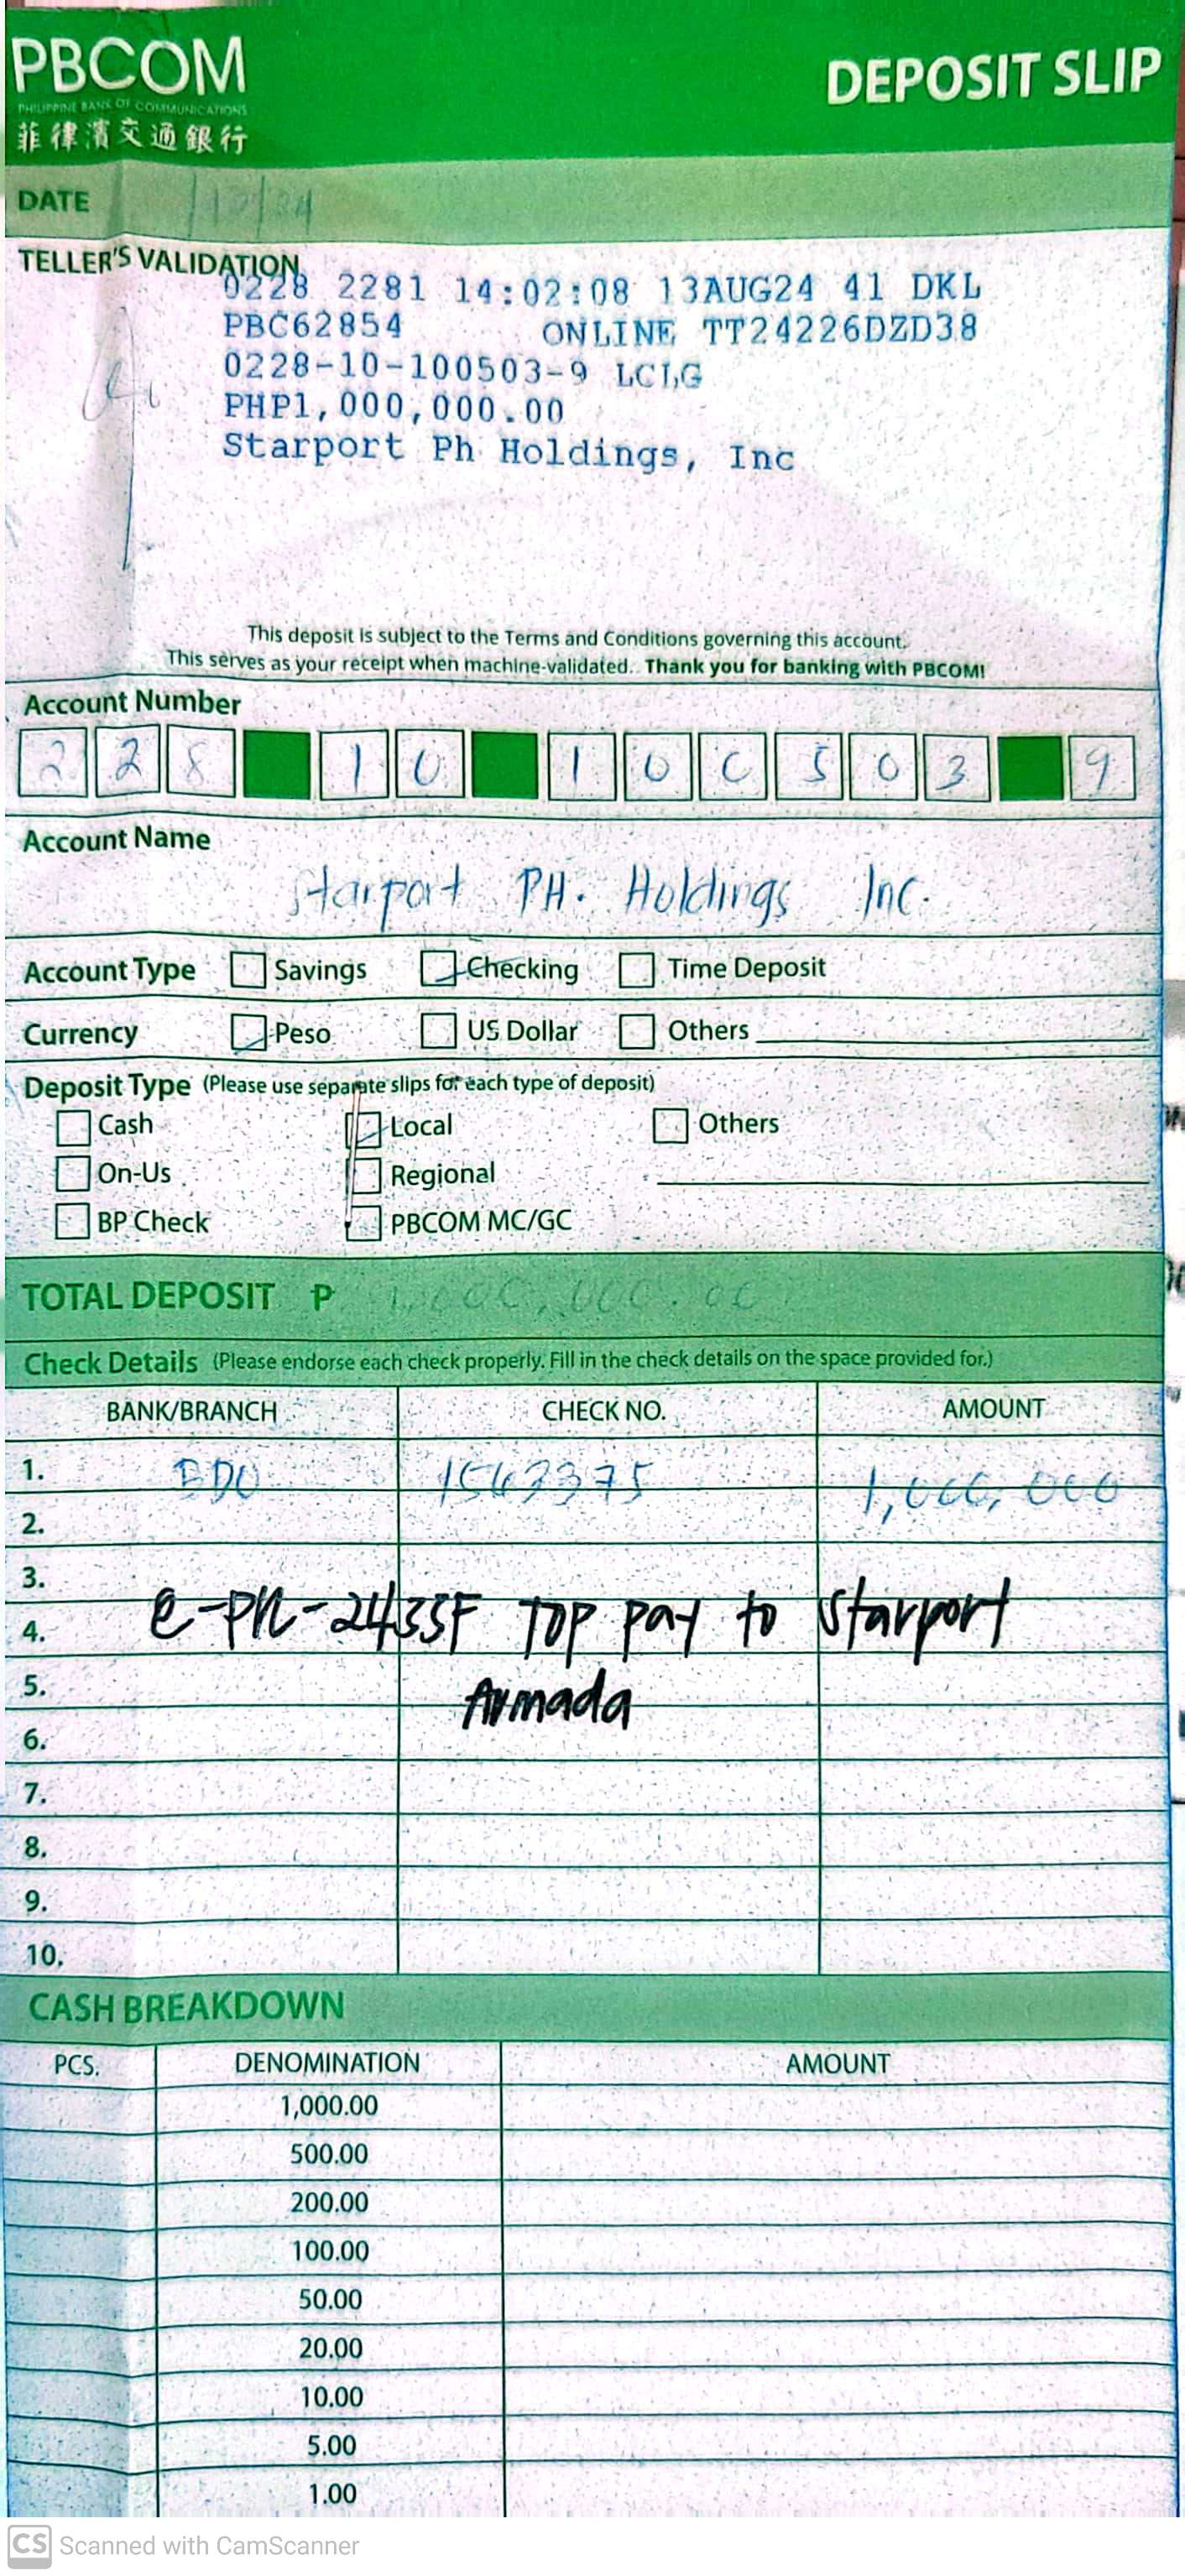 PBCOM
DEPOSIT SLIP
PHILIPPINE BANK OF COMMUNICATIONS
菲律濱交通銀行
DATE
TELLER'S VALIDATION
0228 2281 14:02:08 13AUG24 41 DKL
PBC62854 ONLINE TT24226DZD38
0228-10-100503-9 LCLG
PHP1,000,000.00
Starport Ph Holdings, Inc
This deposit is subject to the Terms and Conditions governing this account.
This serves as your receipt when machine-validated. Thank you for banking with PBCOM!
Account Number
2 2 8 1 0 1 0 0 5 0 3 9
Account Name
Starport PH. Holdings Inc.
Account Type Savings Checking Time Deposit
Currency Peso US Dollar Others
Deposit Type (Please use separate slips for each type of deposit)
Cash Local Others
On-Us Regional
BP Check PBCOM MC/GC
TOTAL DEPOSIT ₱ 1,000,000.00
Check Details (Please endorse each check properly. Fill in the check details on the space provided for.)
BANK/BRANCH CHECK NO. AMOUNT
1. BDO 1,000,000
2.
3.
4. TOP pay to Starport
5. Armada
6.
7.
8.
9.
10.
CASH BREAKDOWN
PCS. DENOMINATION AMOUNT
1,000.00
500.00
200.00
100.00
50.00
20.00
10.00
5.00
1.00
CS Scanned with CamScanner